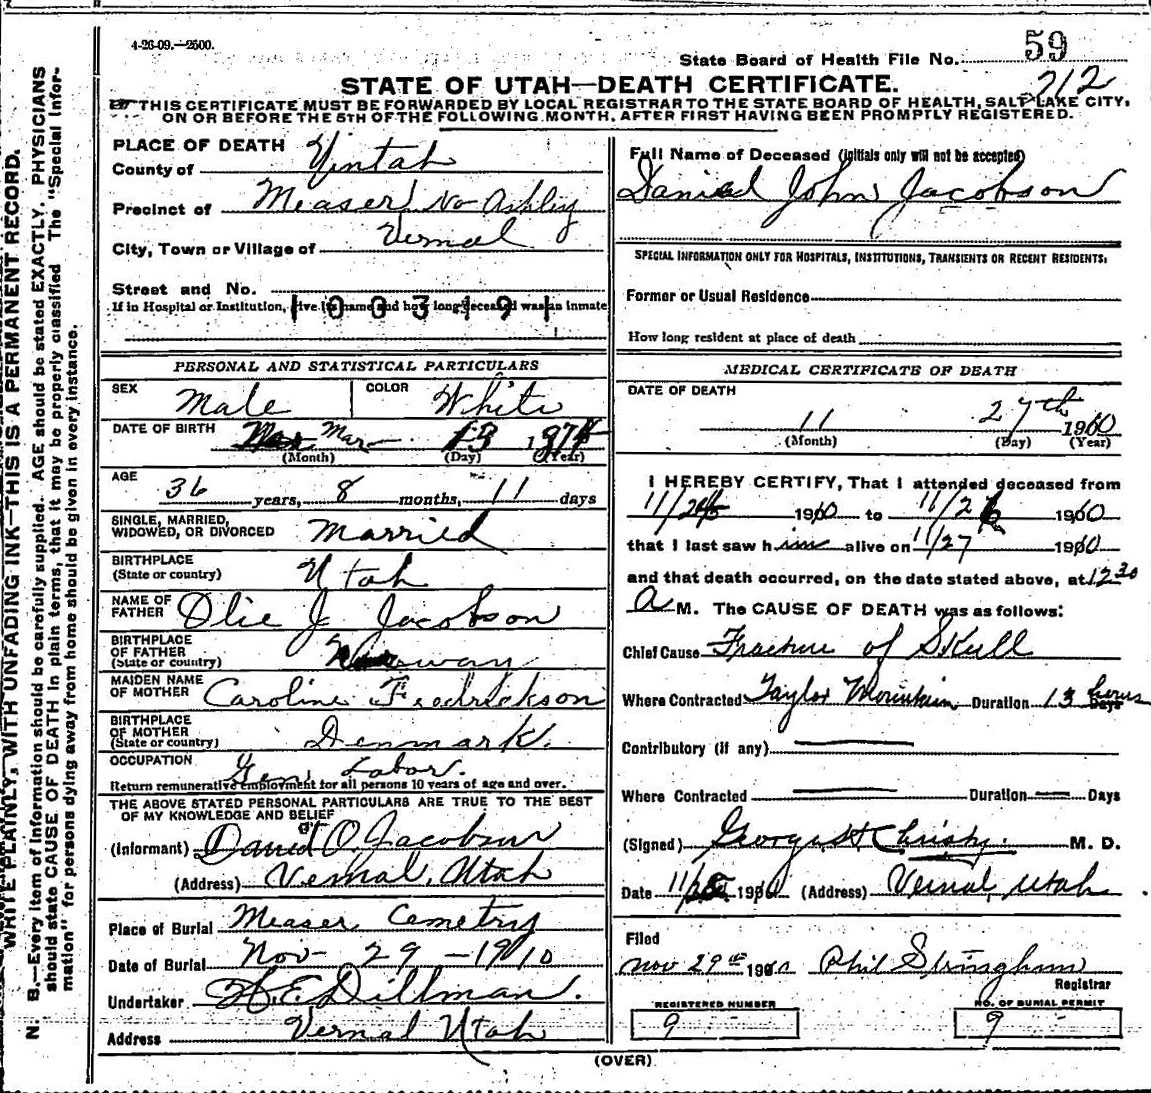 4-26-09.—2500.
State Board of Health File No. 59
212
STATE OF UTAH—DEATH CERTIFICATE.
THIS CERTIFICATE MUST BE FORWARDED BY LOCAL REGISTRAR TO THE STATE BOARD OF HEALTH, SALT LAKE CITY,
ON OR BEFORE THE 5TH OF THE FOLLOWING MONTH, AFTER FIRST HAVING BEEN PROMPTLY REGISTERED.
WRITE PLAINLY, WITH UNFADING INK—THIS IS A PERMANENT RECORD.
N. B.—Every item of information should be carefully supplied. AGE should be stated EXACTLY. PHYSICIANS
should state CAUSE OF DEATH in plain terms, that it may be properly classified. The "Special Infor-
mation" for persons dying away from home should be given in every instance.
PLACE OF DEATH
County of Uintah
Precinct of Measer No Ashley
City, Town or Village of Vernal
Street and No.
If in Hospital or Institution, give its name and how long deceased was an inmate
1003191
PERSONAL AND STATISTICAL PARTICULARS
SEX Male COLOR White
DATE OF BIRTH Mar 13 1874
(Month) (Day) (Year)
AGE 36 years, 8 months, 11 days
SINGLE, MARRIED,
WIDOWED, OR DIVORCED Married
BIRTHPLACE
(State or country) Utah
NAME OF
FATHER Olie J Jacobson
BIRTHPLACE
OF FATHER
(State or country) Norway
MAIDEN NAME
OF MOTHER Caroline Fredrickson
BIRTHPLACE
OF MOTHER
(State or country) Denmark.
OCCUPATION Gen Labor.
Return remunerative employment for all persons 10 years of age and over.
THE ABOVE STATED PERSONAL PARTICULARS ARE TRUE TO THE BEST
OF MY KNOWLEDGE AND BELIEF
(Informant) O. Jacobson
(Address) Vernal, Utah
Place of Burial Measer Cemetry
Date of Burial Nov- 29 -1910
Undertaker H. E. Dillman.
Address Vernal Utah
Full Name of Deceased (initials only will not be accepted)
Daniel John Jacobson
SPECIAL INFORMATION ONLY FOR HOSPITALS, INSTITUTIONS, TRANSIENTS OR RECENT RESIDENTS:
Former or Usual Residence
How long resident at place of death
MEDICAL CERTIFICATE OF DEATH
DATE OF DEATH
11 27th 1910
(Month) (Day) (Year)
I HEREBY CERTIFY, That I attended deceased from
11/26 1910 to 11/26 1910
that I last saw him alive on 11/27 1910
and that death occurred, on the date stated above, at 12 30
A M. The CAUSE OF DEATH was as follows:
Chief Cause Fracture of Skull
Where Contracted Taylor Mountain Duration 13 hours Days
Contributory (if any)
Where Contracted Duration Days
(Signed) M. D.
Date 11/28 1910 (Address) Vernal, Utah
Filed
Nov 29th 1910 Phil Stringham
Registrar
REGISTERED NUMBER
9
NO. OF BURIAL PERMIT
9
(OVER)